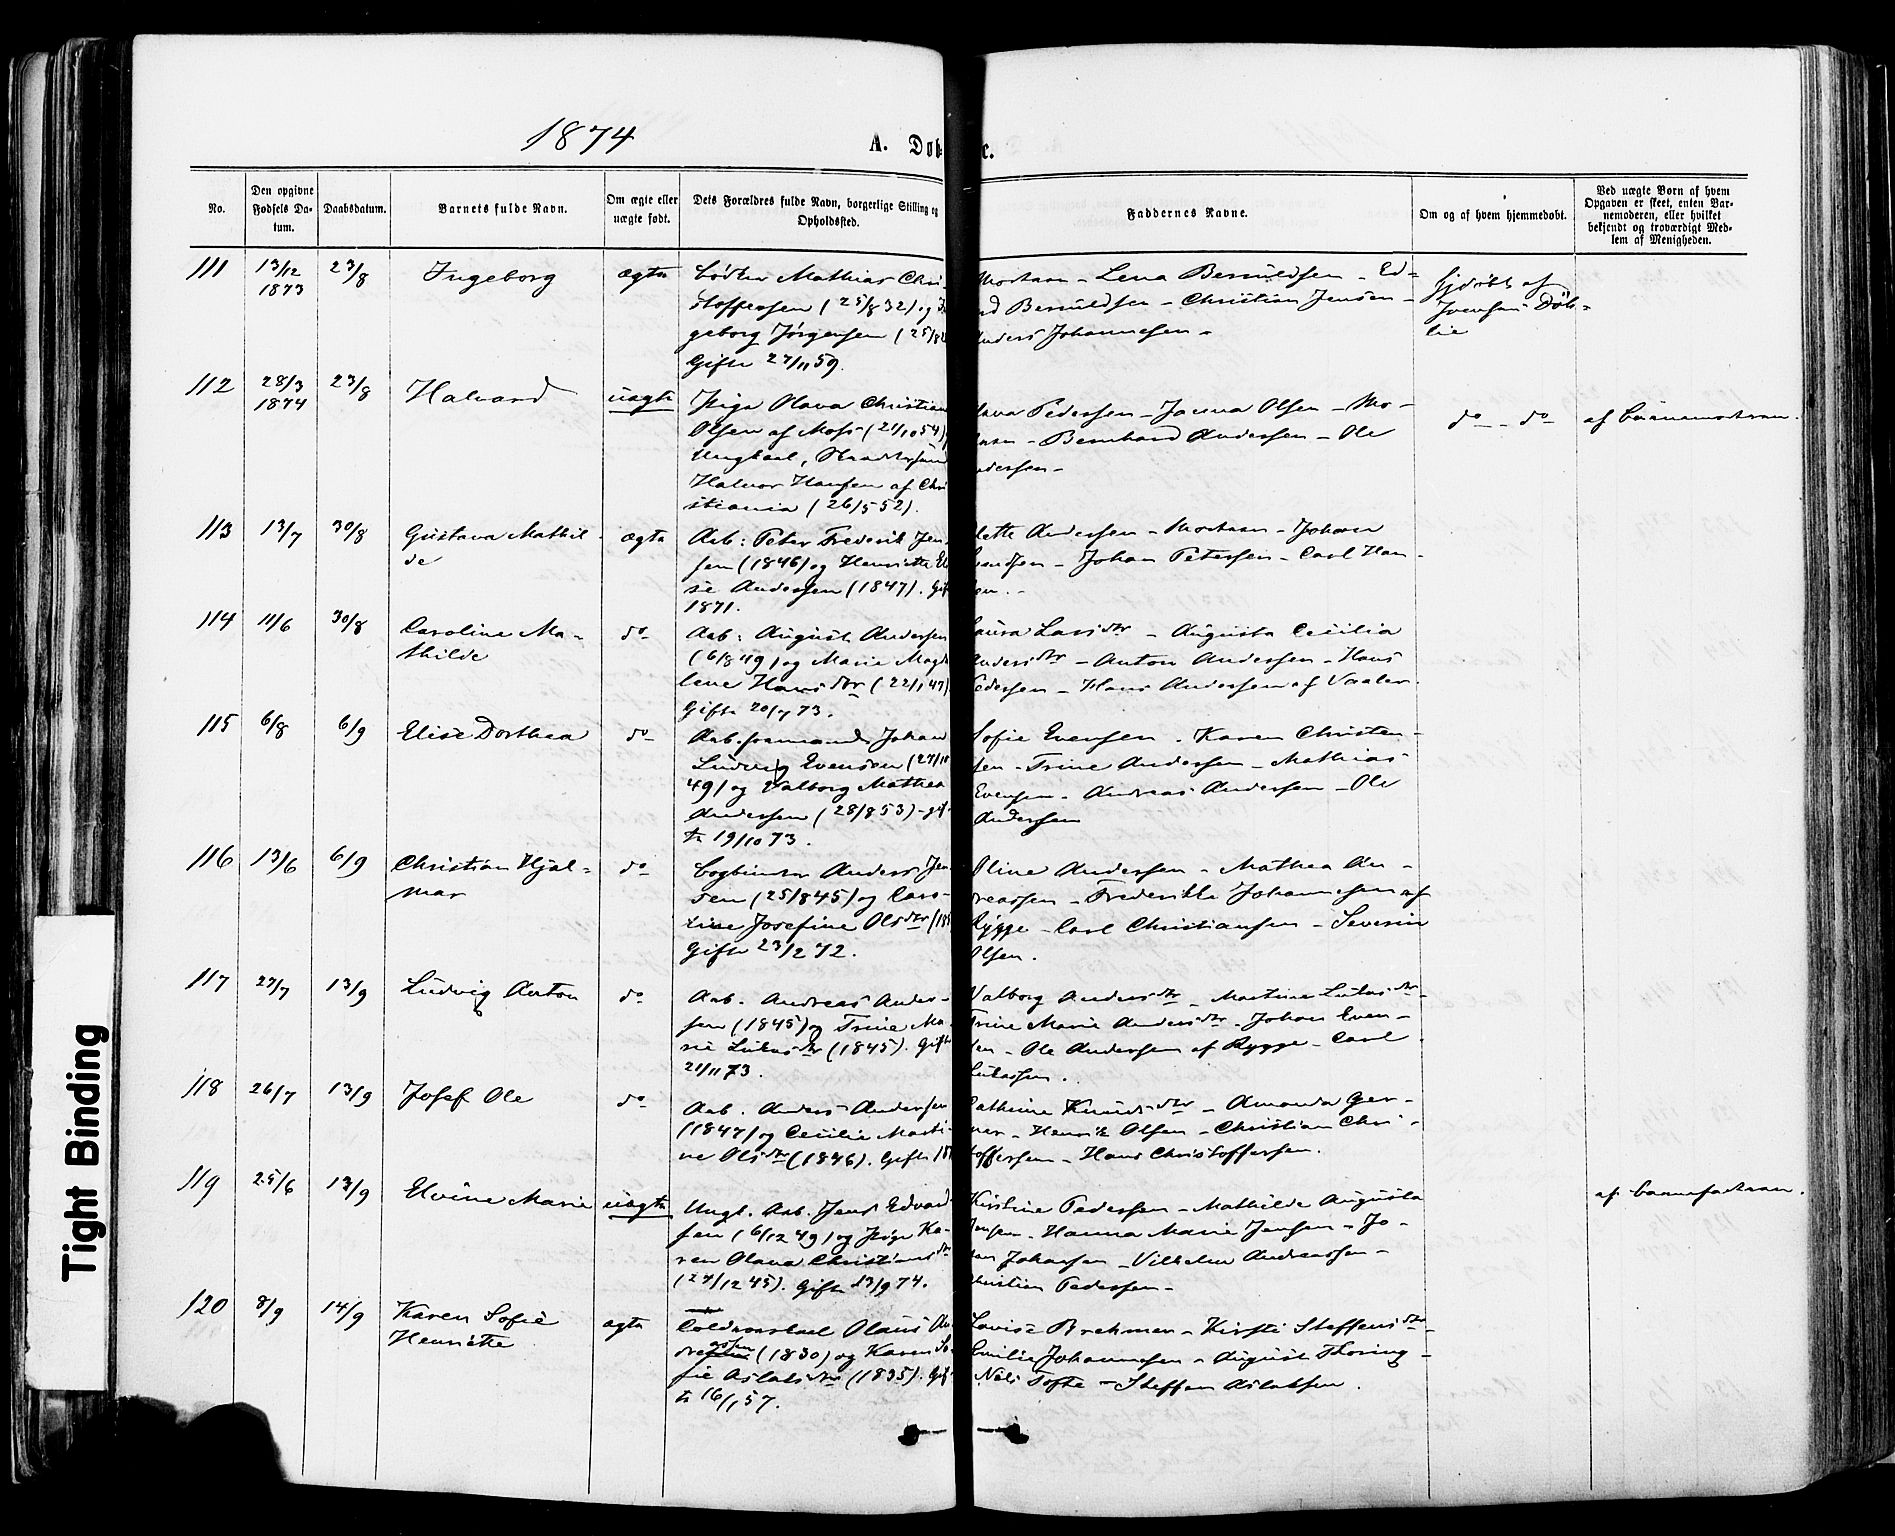 1874
A. Døb
e.
No.
Den opgivne Fødsels Da-tum.
Daabsdatum.
Barnets fulde Navn.
Om ægte eller uægte født.
Dets Forældres fulde Navn, borgerlige Stilling og Opholdssted.
Faddernes Navne.
Om og af hvem hjemmedøbt.
Ved uægte Børn af hvem Opgaven er skeet, enten Bar-nemoderen, eller hvilket bekjendt og troværdigt Med-lem af Menigheden.
111 13/12 1873 23/8 Ingeborg ægte
Bødker Mathias Chri-
stoffersen (25/8 32) og In
geborg Jørgensen (25/8
Gifte 27/11 59.
Moderen - Lena Bernildsen - Ed-
Bernildsen - Christian Jensen -
Anders Johannesen -
hjdøbt af
Døb-
112 28/3 1874 23/8 Halvard uægte
Pige Olava Christian
Olsen af Moss (21/10 54)
Ungkarl,
Halvor Hansen af Chri
stiania (26/5 52).
Pedersen - Janna Olsen - Mo-
- Bernhard Andersen - Ole
ndersen -
do - do
af Barnemoderen.
113 13/7 30/8 Gustava Mathil-
de ægte
Arb: Peter Frederik Jen-
sen (1846) og Henriette El
se Andersen (1847). Gift
1871.
lette Andersen - Moderen - Johan
- Johan Petersen - Carl Han-
sen. -
114 11/6 30/8 Caroline Ma-
thilde do
Arb: August Andersen
(6/8 49) og Marie Magda
lene Hansdtr (22/1 47)
Gifte 20/7 73.
Laura Larsdtr - Augusta Cecilia
Andersdtr - Anton Andersen - Hans
Pedersen - Hans Andersen af Vaaler.
115 6/8 6/9 Elise Dorthea do
Arb. formand Johan
Ludvig Evensen (27/10
49) og Valborg Mathea
Andersen (28/8 53) - gif-
te 19/10 73.
Sofie Evensen. Karen Christen-
sen - Trine Andersen - Mathias
Evensen - Andreas Andersen - Ole
Andersen
116 13/6 6/9 Christian Hjal-
mar do
Bogbinder Anders Jen
sen (25/8 45) og Caro-
line Josefine Olsdtr (18
Gifte 23/2 72.
Oline Andersen - Mathea An-
dreassen - Frederikke Johannesen af
Rygge - Carl Christiansen - Severin
Olsen.
117 27/7 13/9 Ludvig Anton do
Arb. Andreas Ander-
sen (1845) og Trine Ma-
rie Lukasdtr (1845). Gifte
21/11 73.
Valborg Andersdtr - Martine Lukasdtr -
Trine Marie Andersdtr - Johan Even-
sen - Ole Andersen af Rygge - Carl
Lukassen.
118 26/7 13/9 Josef Ole do
Arb. Anders Andersen
(1847) og Cecilie Marti-
ne Olsdtr (1846). Gifte 18
Cathrine Knudsdtr - Amanda Ger-
ner - Henrik Olsen - Christian Chri-
stoffersen - Hans Christoffersen.
119 25/6 13/9 Elvine Marie uægte
Ungk. Arb. Jens Edvard
sen (6/12 49) og Pige Ka-
ren Olava Christiansdtr
(27/12 45). Gifte 13/9 74.
Kirstine Pedersen - Mathilde Augusta
Jensen - Hanna Marie Jensen - Jo-
han Johansen - Vilhelm Andreassen -
Christian Pedersen -
af Barnefaderen.
120 8/9 14/9 Karen Sofie
Henriette ægte
Olaus An
dreasen (1830) og Karen So-
fie Aslaksdtr (1835). Gif-
te 16/1 57.
Lovise Brehmer - Kirsti Steffensdtr -
Emilie Johannesen - August Thoring -
Nils Tofte - Steffen Aslaksen.
Tight Binding